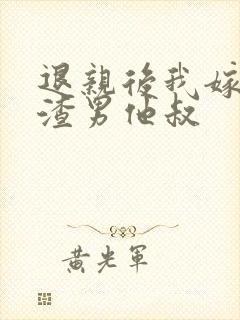 退親後我嫁
渣男他叔
黄光軍